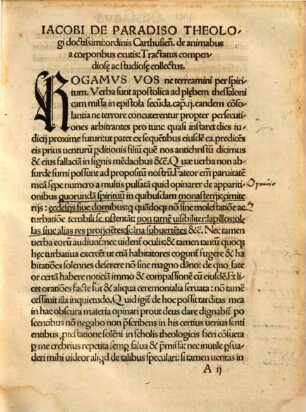 IACOBI DE PARADISO THEOLO-
gi doctissimi: ordinis Carthusieñ. de animabus
a corporibus exutis: Tractatus compen-
diose ac studiose collectus.
ROGAMVS VOS ne terreamini per spiri-
tum. Verba sunt apostolica ad plebem thessaloni
cam missa in epistola secūda. cap. ij. eandem cōso-
lantia ne terrore concuterentur propter persecu-
tiones arbitrantes pro tunc quasi instaret dies iu-
dicij proxime futurus: ut patet ex sequētibus eiusdē ca. p̄dicēs
eis prius uenturū p̄ditionis filiū quē nos antichristū dicimus
& eius fallaciā in signis mēdacibus &cę. Quæ uerba non ab-
surde sumi possunt ad propositū nostrū: ratoēm paruitatē
meā sępe numero a multis pulsatā quid opinarer de apparitio
nibus quorundā spirituū in quibusdam monasterijs: cimite-
rijs: & ędibus siue domibus: quādoq; nō sine molestatōe ac
turbatiōe
non tamē uisibiliter: lapillos: ol-
las siue alias res proijciētes: scāna subuertētes &cę. Nec tamen
uerba eorū audiunt: nec uident oculis: & tamen tantū quoq;
hęc turbatio excreuit ut etiā habitatores cogunt̄ fugere & ha
bitatiōes solennes deserere nō sine magno dāno: & de quo fa
tor certā habere noticiā immo & cōpassionē cū eiusdē. Et li-
cet oratiōes factę sint & aliqua ceremonialia seruata: nō tamē
cessauit illa inquietando. Quid igit̄ de hoc possit tarditas mea
in hac obscura materia opinari prout deus dare dignabit̄ po
scenobus nō negabo non p̄scribens in his certius uerius sen-
tientibus,
solenni in scholis theologicis: sed cōsue-
ge me crebrius repetita semp salua & p̄missa: nec inutile psua
deri mihi uideor aliqd de talibus speculari: si tamen ueritas in
A ij
Opinio